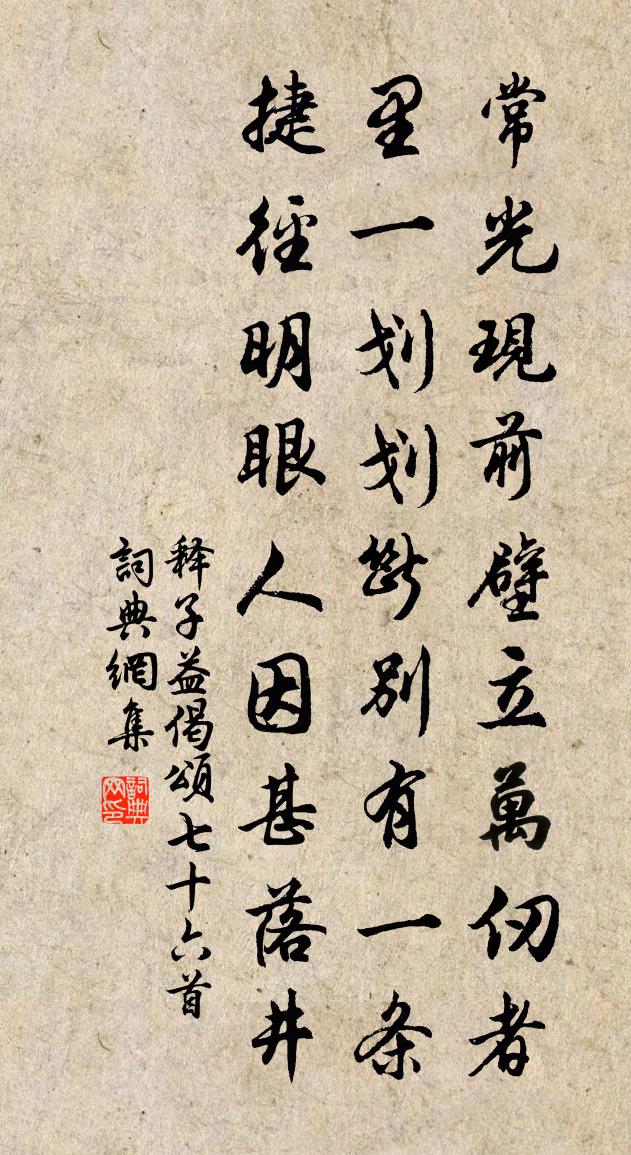 常光現前壁立萬仞者
里一划划斷別有一条
捷徑明眼人因甚落井
释子益偈頌七十六首
詞典網集
詞典网印